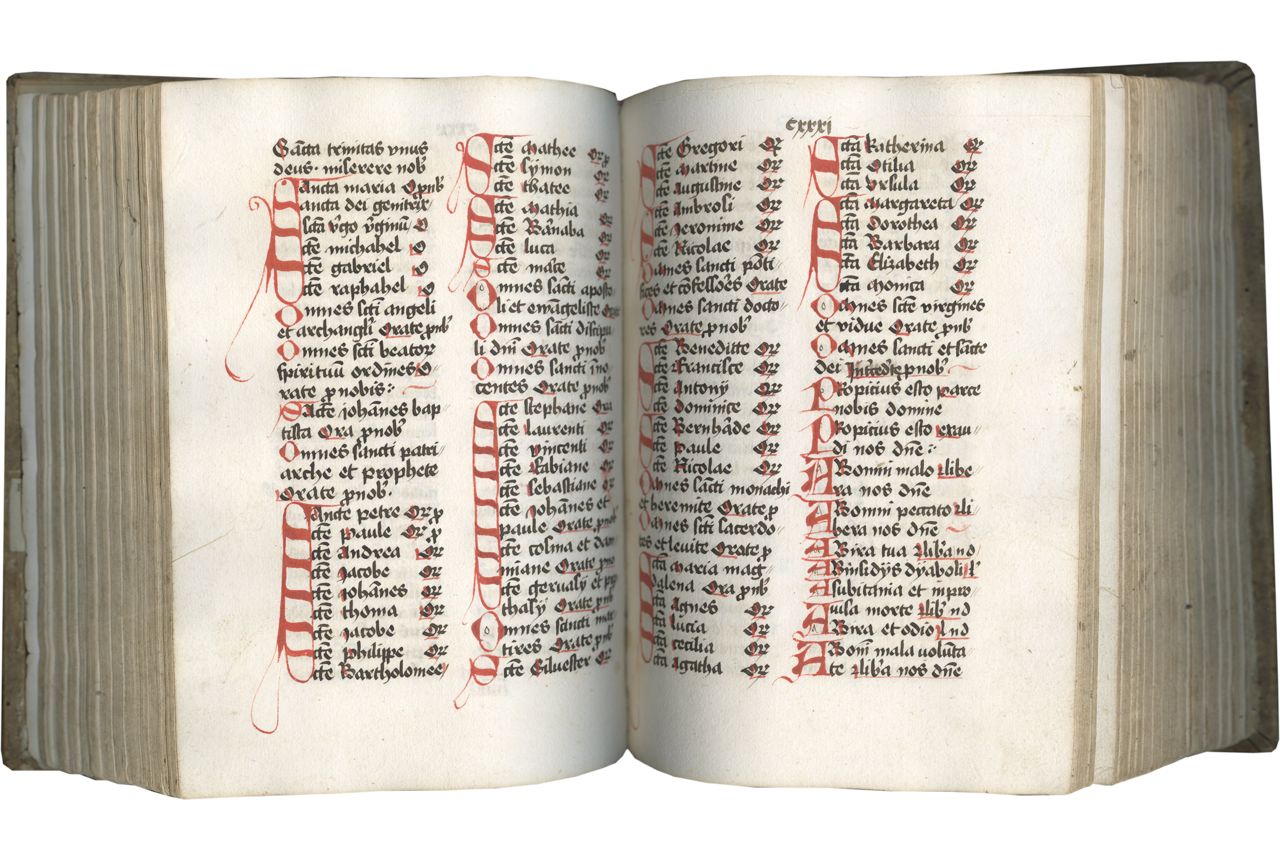 Sācta trinitas vnus
deus· miserere nob̾
Sancta maria Op̱nb̾
Sancta dei genitrix
Sctā v̾go v̾ginū O
Scte michahel O
Scte gabriel O
Scte raphahel O
Omnes sancti angeli
et archangli Orate p̱nb̾
Omnes scti beator
spirituū ordines O
rate p̱ nobis:
Sācte johānes bap
tista Ora p̱nob̾
Omnes sancti patri
arche et prophete
Orate p̱nob̾·
Sancte petre Or p̱
Scte paule Or p̱
Scte Andrea Or
Scte Jacobe Or
Scte johānes Or
Scte thoma Or
Scte Jacobe Or
Scte philippe Or
Scte Bartholomee
Scte Mathee Or p̱
Scte Symon Or
Scte thatee Or
Scte Mathia Or
Scte Barnaba Or
Scte luca Or
Scte marce Or
Omnes sācti aposto
li et ewāgeliste Orate
Omnes sācti discipu
li dnī Orate p̱nob̾
Omnes sancti īno
centes Orate p̱nob̾
Scte stephane Ora
Scte laurenti Or
Scte vincenti Or
Scte fabiane Or
Scte sebastiane Or
Scte johānes et
paule Orate p̱nob̾
Scte cosma et dam
miane Orate p̱no
Scte gervasy et pro
thasy Orate p̱nb̾
Omnes sancti mar
tires Orate p̱nb̾
Scte Siluester Or
cxxxi
Scte Gregori Or
Scte Martine Or
Scte Augustine Or
Scte Ambrosi Or
Scte Jeronime Or
Scte Nicolae Or
Omnes sancti pōti
fices et cōfessores Orate
Omnes sancti docto
res Orate p̱nob̾
Scte Benedicte Or
Scte Francisce Or
Scte Antony Or
Scte dominice Or
Scte Bernhāde Or
Scte paule Or
Scte Nicolae Or
Omnes sācti monachi
et heremite Orate p̱
Omnes scti sacerdo
tes et leuite Orate p̱
Sctā maria mag
dalena Ora p̱nb̾
Sctā Agnes Or
Sctā lucia Or
Sctā cecilia Or
Sctā Agatha Or
Sctā Katherina Or
Sctā Otilia Or
Sctā Vrsula Or
Sctā Margareta Or
Sctā Dorothea Or
Sctā Barbara Or
Sctā Elizabeth Or
Sctā Monica Or
Omnes scte virgines
et vidue Orate p̱nb̾
Omnes sancti et sācte
dei Intcedite p̱nob̾
PRopicius esto parce
nobis domne
PRopicius esto exau
di nos dn̄e:
ABomni malo libe
ra nos dn̄e
ABomni peccato li
bera nos dn̄e
ABira tua lib̾a no
ABinsidijs dyaboli l
Asubitania et inpro
uisa morte lib̾ nō
ABira et odio l nō
ABom̄ mala volūta
te lib̾a nos dn̄e